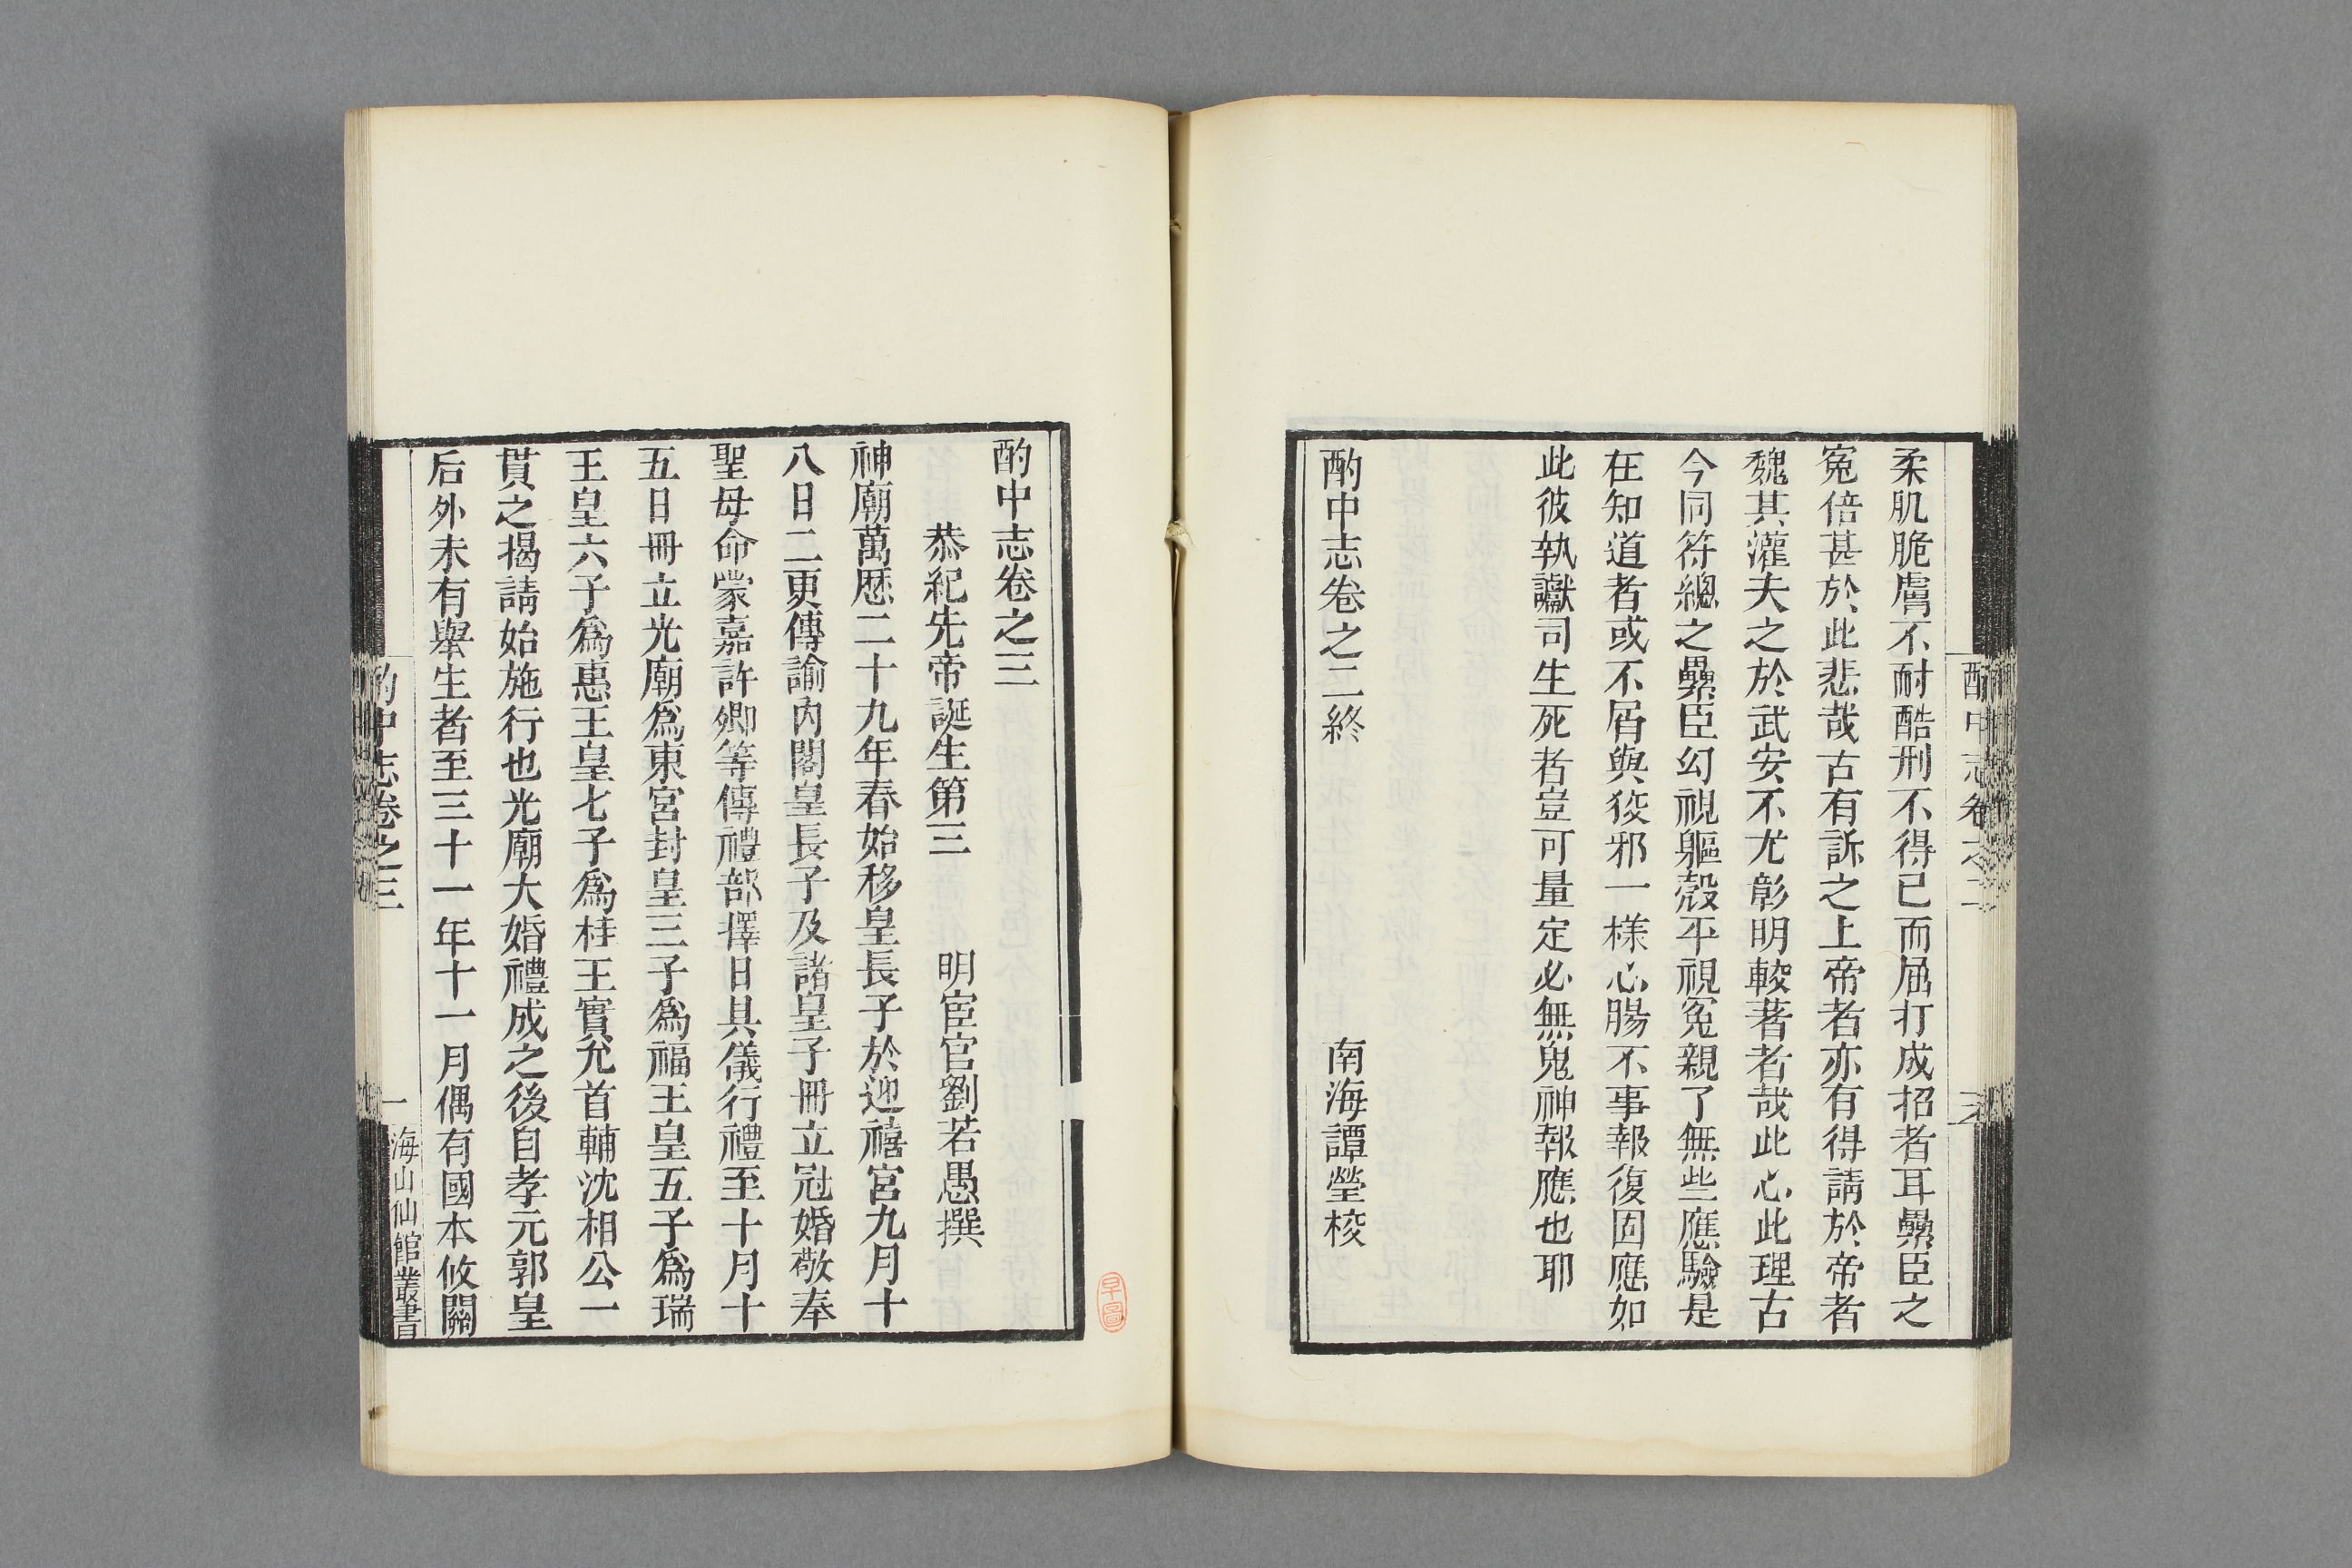 柔肌脆膚不耐酷刑不得已而屈打成招者耳纍臣之
寃倍甚於此悲哉古有訴之上帝者亦有得請於帝者
魏其灌夫之於武安不尤彰明較著者哉此心此理古
今同符總之纍臣幻視軀殼平視寃親了無些應驗是
在知道者或不屑與狡邪一樣心腸不事報復固應如
此彼執讞司生死者豈可量定必無鬼神報應也耶
酌中志卷之二終
南海譚瑩校
酌中志卷之三
恭紀先帝誕生第三
明宦官劉若愚撰
神廟萬厯二十九年春始移皇長子於迎禧宮九月十
八日二更傳諭內閣皇長子及諸皇子冊立冠婚敬奉
聖母命蒙嘉許卿等傳禮部擇日具儀行禮至十月十
五日冊立光廟爲東宮封皇三子爲福王皇五子爲瑞
王皇六子爲惠王皇七子爲桂王實允首輔沈相公一
貫之揭請始施行也光廟大婚禮成之後自孝元郭皇
后外未有舉生者至三十一年十一月偶有國本攸關
酌中志卷之三
一
海山仙館叢書
早圖